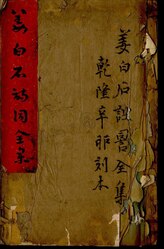 姜白石詩詞全集
姜白石詩詞全集
乾隆辛卯刻本